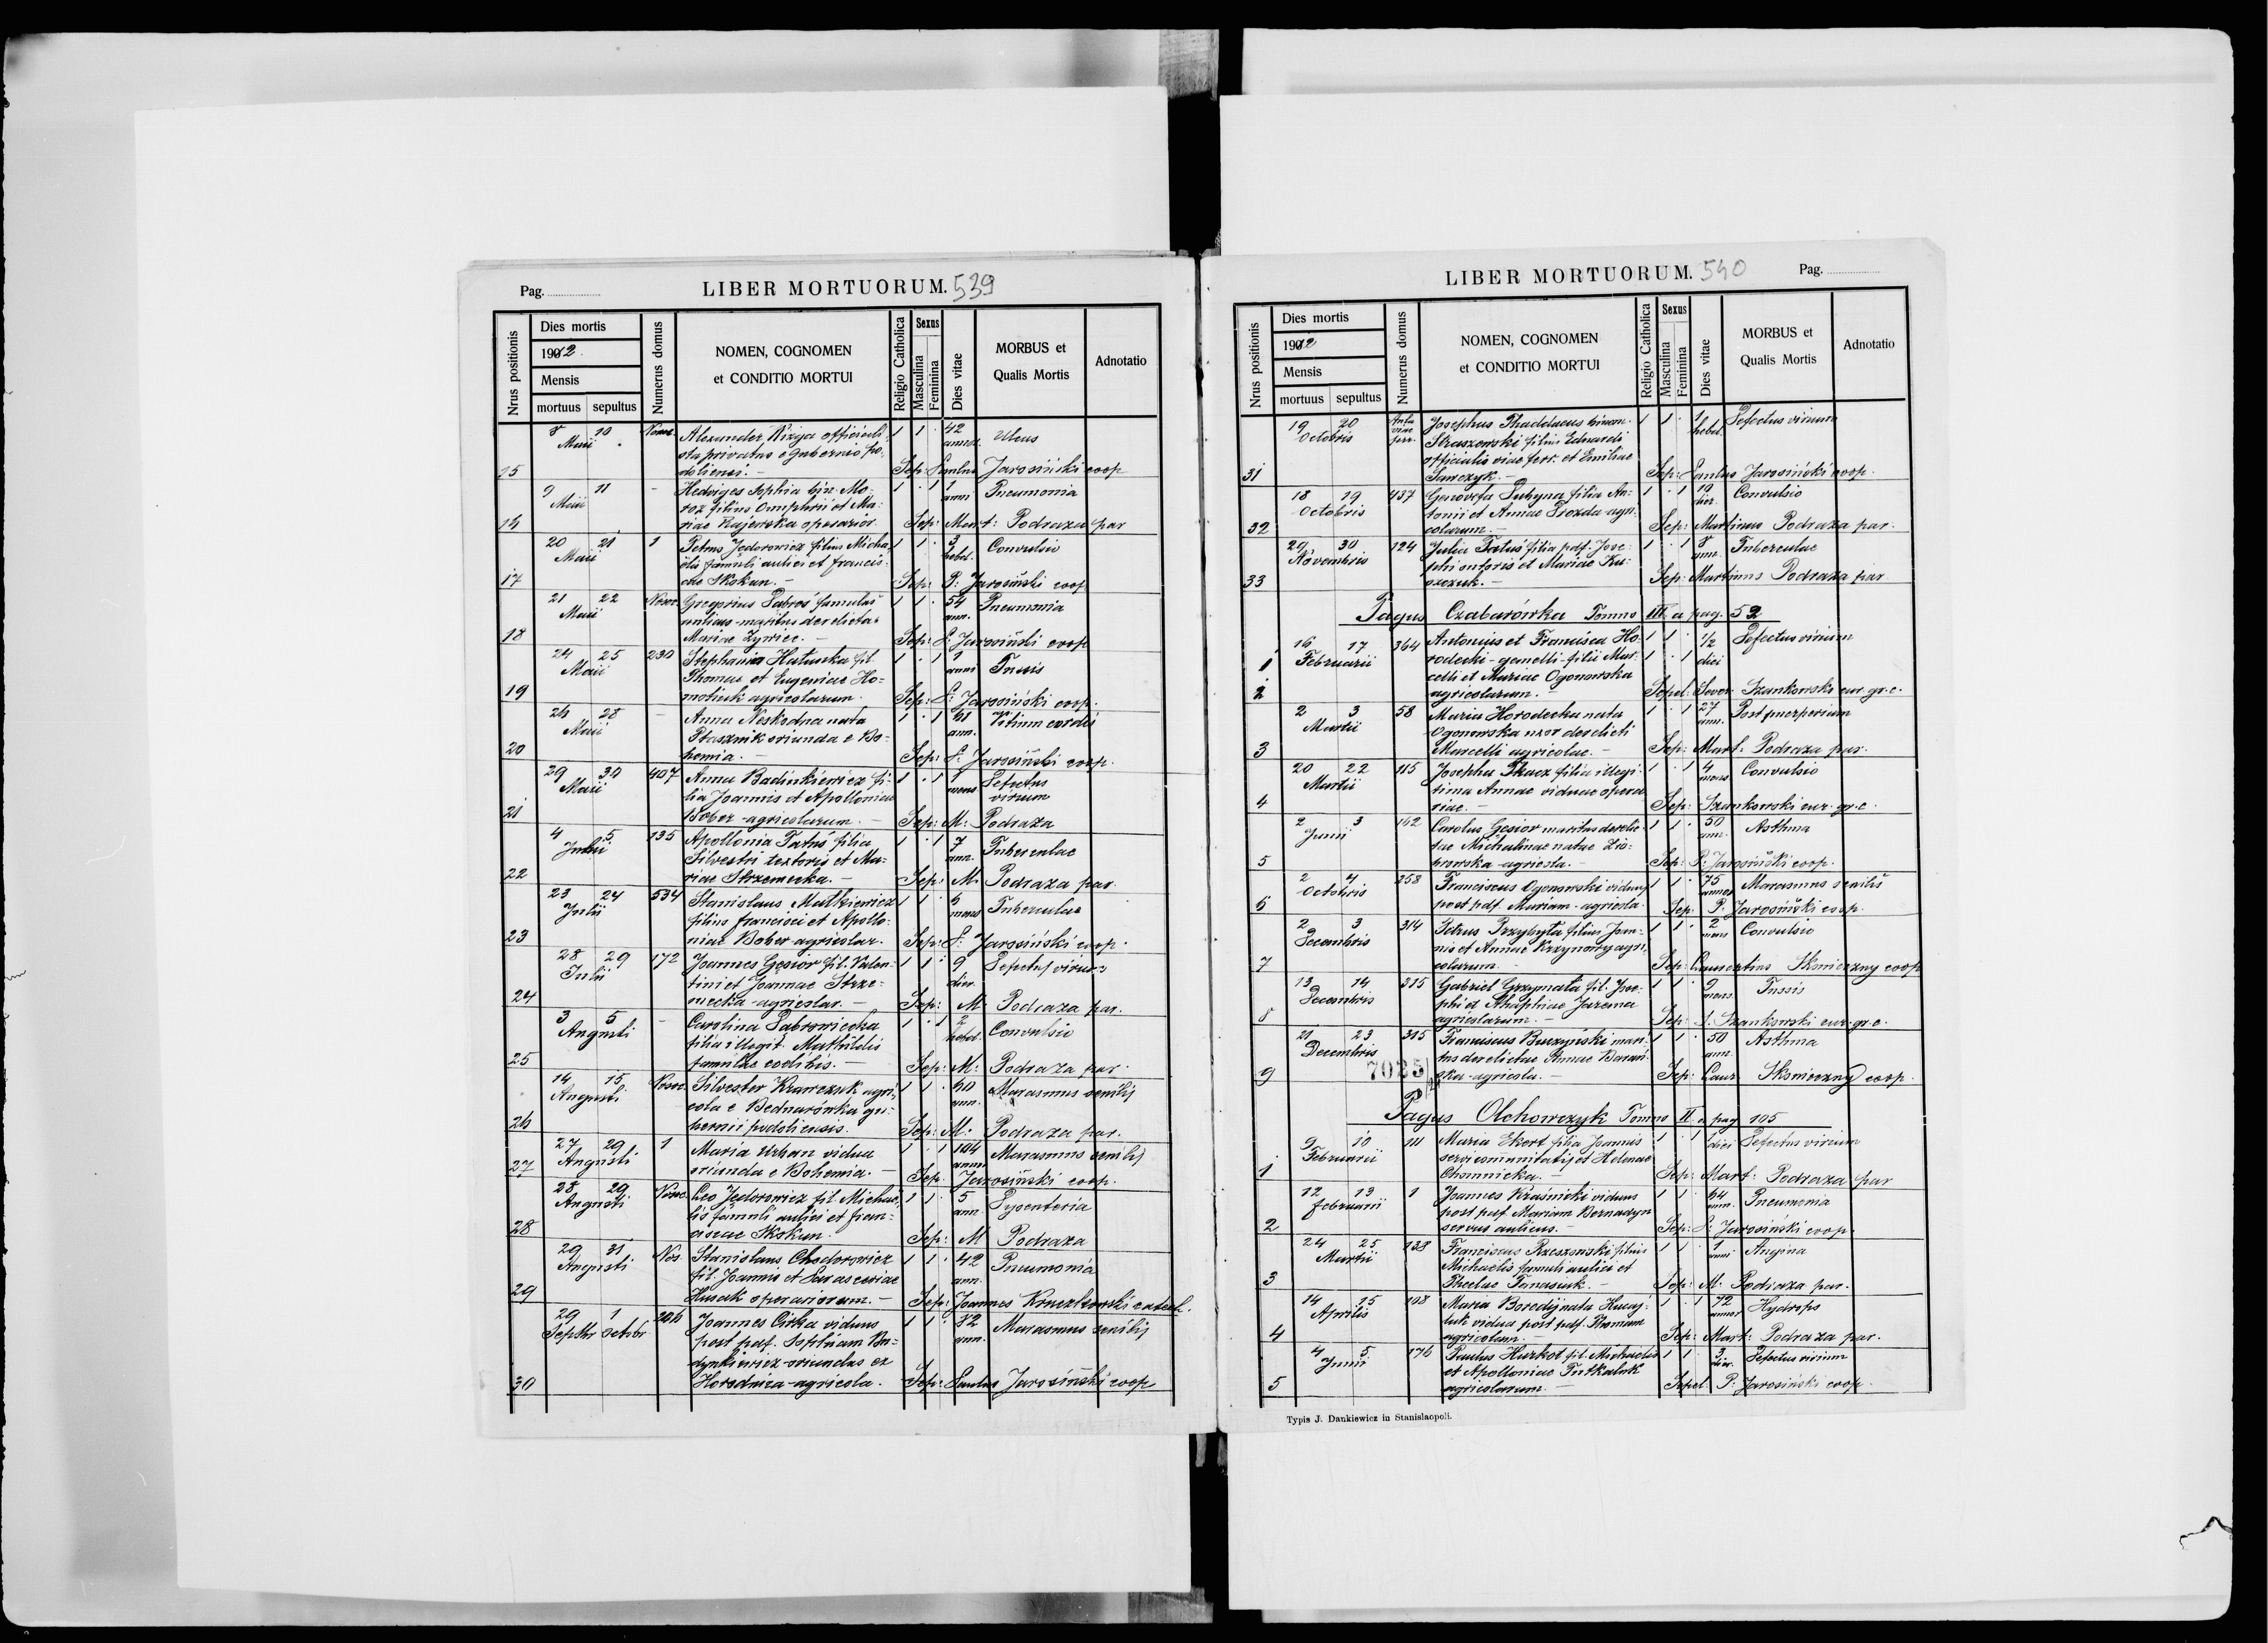 Pag. LIBER MORTUORUM. 539
Nrus positionis
Dies mortis
1912
Mensis
mortuus sepultus
Numerus domus
NOMEN, COGNOMEN
et CONDITIO MORTUI
Religio Catholica
Sexus
Masculina
Feminina
Dies vitae
MORBUS et
Qualis Mortis
Adnotatio
8 10 Nosoc. Alexander officiali 1 1 · 42 Ulcus
Maii sta privatus e gubernio po annor.
15 doliensi. — Sep: Paulus Jarosiński coop
9 11 - Hedviges Sophia bin. Mo 1 · 1 1 Pneumonia
Maii roz filius Onuphrii et Ma anni
16 riae Rajewska operarior. Sep: Mart: Podraza par
20 21 1 Petrus Jedorowicz filius Micha 1 1 · 3 Convulsio
Maii elis famuli aulici et Francis hebd.
17 cae Skokun. — Sep: P: Jarosiński coop
21 22 Nosoc. Gregorius Dabroś famulus 1 1 · 54 Pneumonia
Maii aulicus maritus derelictae ann.
18 Mariae Zywiec. — Sep: P: Jarosiński coop
24 25 230 Stephania Hatuska fil. 1 · 1 1 Tussis
Maii Thomae et Eugeniae Ho= anni
19 motiuk agricolarum. Sep: P: Jarosiński coop.
26 28 - Anna Neskodna nata 1 · 1 61 Vitium cordis
Maii Ptasznik oriunda e Bo= ann.
20 hemia. — Sep: P: Jarosiński coop.
29 30 407 Anna Badinkiewicz fi= 1 · 1 1 Defectus
Maii lia Joannis et Apolloniae mens virium
21 Bober agricolarum. — Sep: M: Podraza
4 5 135 Apollonia Tatuś filia 1 · 1 7 Tuberculae
Julii Silvestri textoris et Ma= ann.
22 riae Strzemecka. — Sep: M: Podraza par.
23 24 534 Stanislaus Matkiewicz 1 1 · 6 Tuberculae
Julii filius Francisci et Apollo= mens
23 niae Bober agricolar. Sep: P: Jarosiński coop.
28 29 172 Joannes Gęsior fil. Valen= 1 1 · 9 Defectus virium
Julii tini et Joannae Strze= dier.
24 mecka agricolar. — Sep: M: Podraza par.
3 5 - Carolina Dabrowiecka 1 · 1 2 Convulsio
Augusti filia illegit. Mathildis hebd.
25 famulae coelibis. — Sep: M: Podraza par.
14 15 Nosoc. Silvester Krawczuk agri 1 1 · 60 Marasmus senilis
Augusti cola e Bednarówka gu= ann.
26 bernii podoliensis. Sep: M: Podraza par.
27 29 1 Maria Urban vidua 1 · 1 104 Marasmus senilis
27 Augusti oriunda e Bohemia. — Sep. Jarosiński coop.
28 29 Nosoc. Leo Jedorowicz fil. Michae 1 1 · 5 Dysenteria
Augusti lis famuli aulici et Fran= ann.
28 ciscae Skokun. Sep: M Podraza
29 31 Nos. Stanislaus Chodorowicz 1 1 · 42 Pneumonia
Augusti fil. Joannis et Parasceviae ann.
29 Husak operariorum. — Sep: Joannes catech.
29 1 206 Joannes Cirka viduus 1 1 · 82 Marasmus senilis
Septbr octobr post pdf. Sophiam Ba= ann.
dynkiewicz oriundus ex
30 Horodnica agricola. Sep: Paulus Jarosiński coop
LIBER MORTUORUM. 540 Pag.
Nrus positionis
Dies mortis
1912
Mensis
mortuus sepultus
Numerus domus
NOMEN, COGNOMEN
et CONDITIO MORTUI
Religio Catholica
Sexus
Masculina
Feminina
Dies vitae
MORBUS et
Qualis Mortis
Adnotatio
19 20 Josephus Thaddaeus binom. 1 1 · 1 Defectus virium
Octobris Straszewski filius Eduardi hebd.
officialis viae ferr. et Emiliae
31 Sawczyk. — Sep: Paulus Jarosiński coop.
18 19 437 Genovefa Puhyna filia An= 1 · 1 19 Convulsio
Octobris tonii et Annae Drozda agri= dier.
32 colarum. — Sep: Martinus Podraza par.
29 30 124 Julia Tatuś filia pdf. Jose= 1 · 1 8 Tuberculae
Novembris phi sutoris et Mariae Ku= ann.
33 Sep: Martinus Podraza par
Pagus Czabarówka Tomno III a pag. 52
16 17 364 Antonius et Francisca Ho= 1 1 · 1/2 Defectus virium
1 Februarii rodecki - gemelli - filii Mar= 1 · 1 diei
celli et Mariae Ogonowska
2 agricolarum. — Sepel: Sever Szankowski cur. gr. c.
2 3 58 Maria Horodecka nata 1 · 1 27 Post puerperium
Martii Ogonowska uxor derelicti ann.
3 Marcelli agricolae. — Sep: Mart: Podraza par.
20 22 115 Josepha Tkacz filia illegi= 1 · 1 4 Convulsio
Martii tima Annae viduae opera mens
4 riae. — Sep: Szankowski cur. gr. c.
2 3 162 Carolus Gęsior maritus derelic= 1 1 · 50 Asthma
Junii tae Michalinae natae Zio= ann.
5 browska agricola. — Sep: P: Jarosiński coop.
2 4 258 Franciscus Ogonowski viduus 1 1 · 75 Marasmus senilis
Octobris post pdf. Mariam - agricola. annor
6 Sep: P: Jarosiński coop.
2 3 314 Petrus Przybyła filius Joan= 1 1 · 2 Convulsio
Decembris nis et Annae Krzynowy agri= mens
7 colarum. Sep: Laurentius Skmieczny coop
13 14 315 Gabriel Grzymała fil. Jose= 1 1 · 9 Tussis
Decembris phi et Agaphiae Jarema mens.
8 agricolarum. — Sep: S. Szankowski cur. gr. c.
21 23 315 Franciscus Buczyński mari= 1 1 · 50 Asthma
Decembris tus derelictae Annae Baran= ann.
7025
9 ska agricola. — Sep: Laur Skmieczny coop.
Pagus Olchowczyk Tomno II a pag 105
9 10 111 Maria Ekert filia Joannis 1 · 1 diei Defectus virium
Februarii servi communitatis et Helenae
1 Chomnicka. — Sep: Mart: Podraza par
12 13 1 Joannes Kraśnicki viduus 1 1 · 64 Pneumonia
Februarii post pdf. Mariam Bernadyn ann.
2 servus aulicus. — Sep: P: Jarosiński coop.
24 25 138 Franciscus Rzeszowski filius 1 1 · 1 Angina
Martii Michaelis famuli aulici et anni
3 Theclae Tanasiuk. — Sep: M: Podraza par.
14 15 108 Maria Boredij nata Hucaj= 1 · 1 72 Hydrops
Aprilis luk vidua post pdf. Thomam annor
4 agricolam. — Sep: Mart: Podraza par.
4 5 176 Paulus Hurkot fil. Michaelis 1 1 3 Defectus virium
Junii et Apolloniae Tutkaluk dier.
5 agricolarum. — Sepel: P: Jarosiński coop.
Typis J. Dankiewicz in Stanislaopoli.